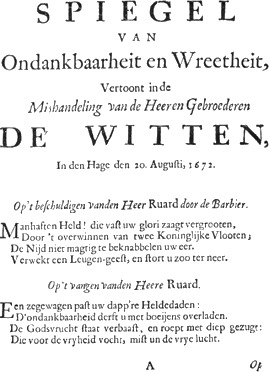 SPIEGEL
VAN
Ondankbaarheit en Wreetheit,
Vertoont in de
Mishandeling van de Heeren Gebroederen
DE WITTEN,
In den Hage den 20. Augusti, 1672.
Op't beschuldigen vanden Heer Ruard door de Barbier.
Manhaften Held! die vast uw glori zaagt vergrooten,
Door 't overwinnen van twee Koninglijke Vlooten;
De Nijd niet magtig te beknabbelen uw eer.
Verwekt een Leugen-geest, en stort u zoo ter neer.
Op't vangen vanden Heere Ruard.
Een zegewagen past uw dapp're Heldedaden:
D'ondankbaarheid derft u met boeijens overladen.
De Godsvrucht staat verbaast, en roept met diep gezugt:
Die voor de vryheid vocht, mist un de vrye lucht.
A Op